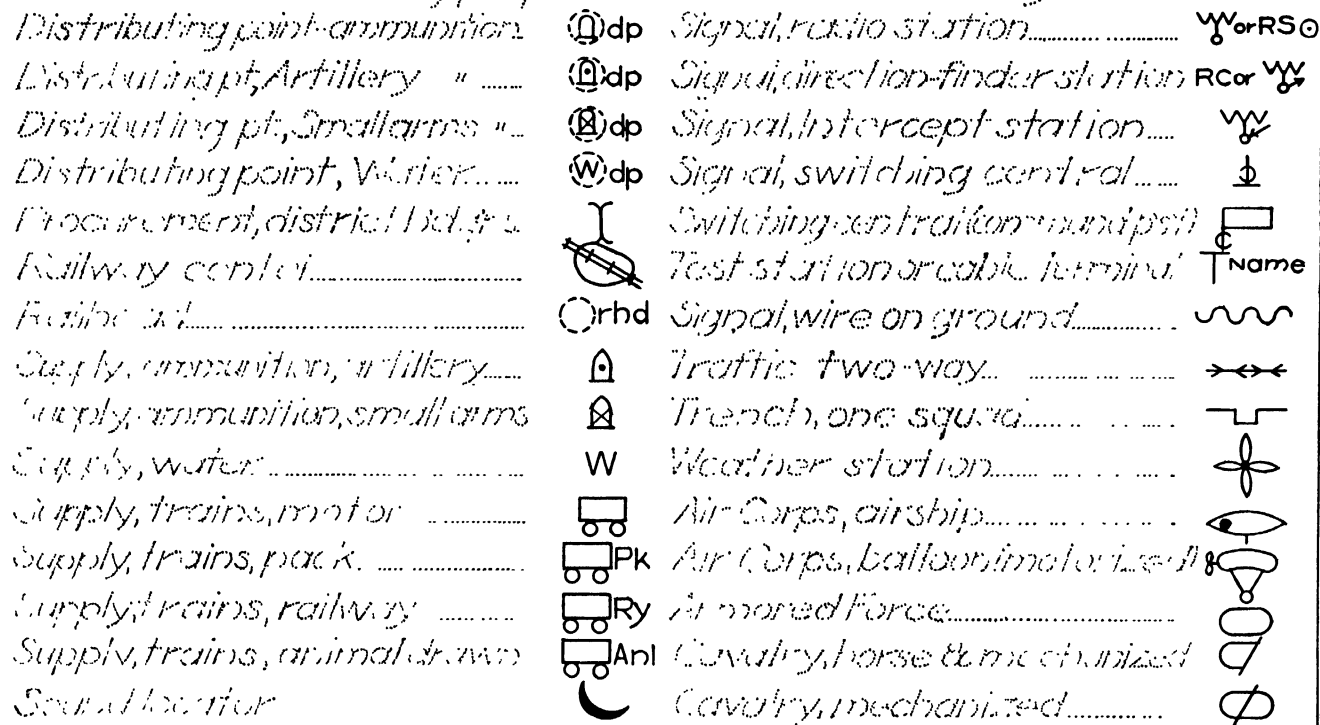 Distributing point-ammunition dp
Distributing pt, Artillery " dp
Distributing pt, Small arms " dp
Distributing point, Water W dp
Procurement, district
Railway center
Railhead rhd
Supply, ammunition, artillery
Supply, ammunition, small arms
Supply, water W
Supply, trains, motor
Supply, trains, pack. Pk
Supply, trains, railway Ry
Supply, trains, animal drawn Anl
Sound locator
Signal, radio station or RS
Signal, direction-finder station RC or
Signal, Intercept station
Signal, switching central
Switching central (command post) C
Test station or cable terminal T Name
Signal, wire on ground
Traffic two-way
Trench, one squad
Weather station
Air Corps, airship
Air Corps, balloon (motorized)
Armored Force
Cavalry, horse & mechanized
Cavalry, mechanized